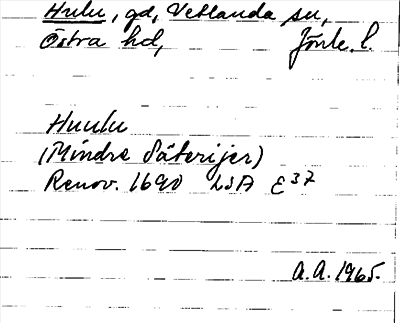 Hulu, gd, Vetlanda sn,
Östra hd, Jönk. l.
Huulu
(Mindre Säterijer)
Renov. 1690 LSA E37
A.A. 1965.